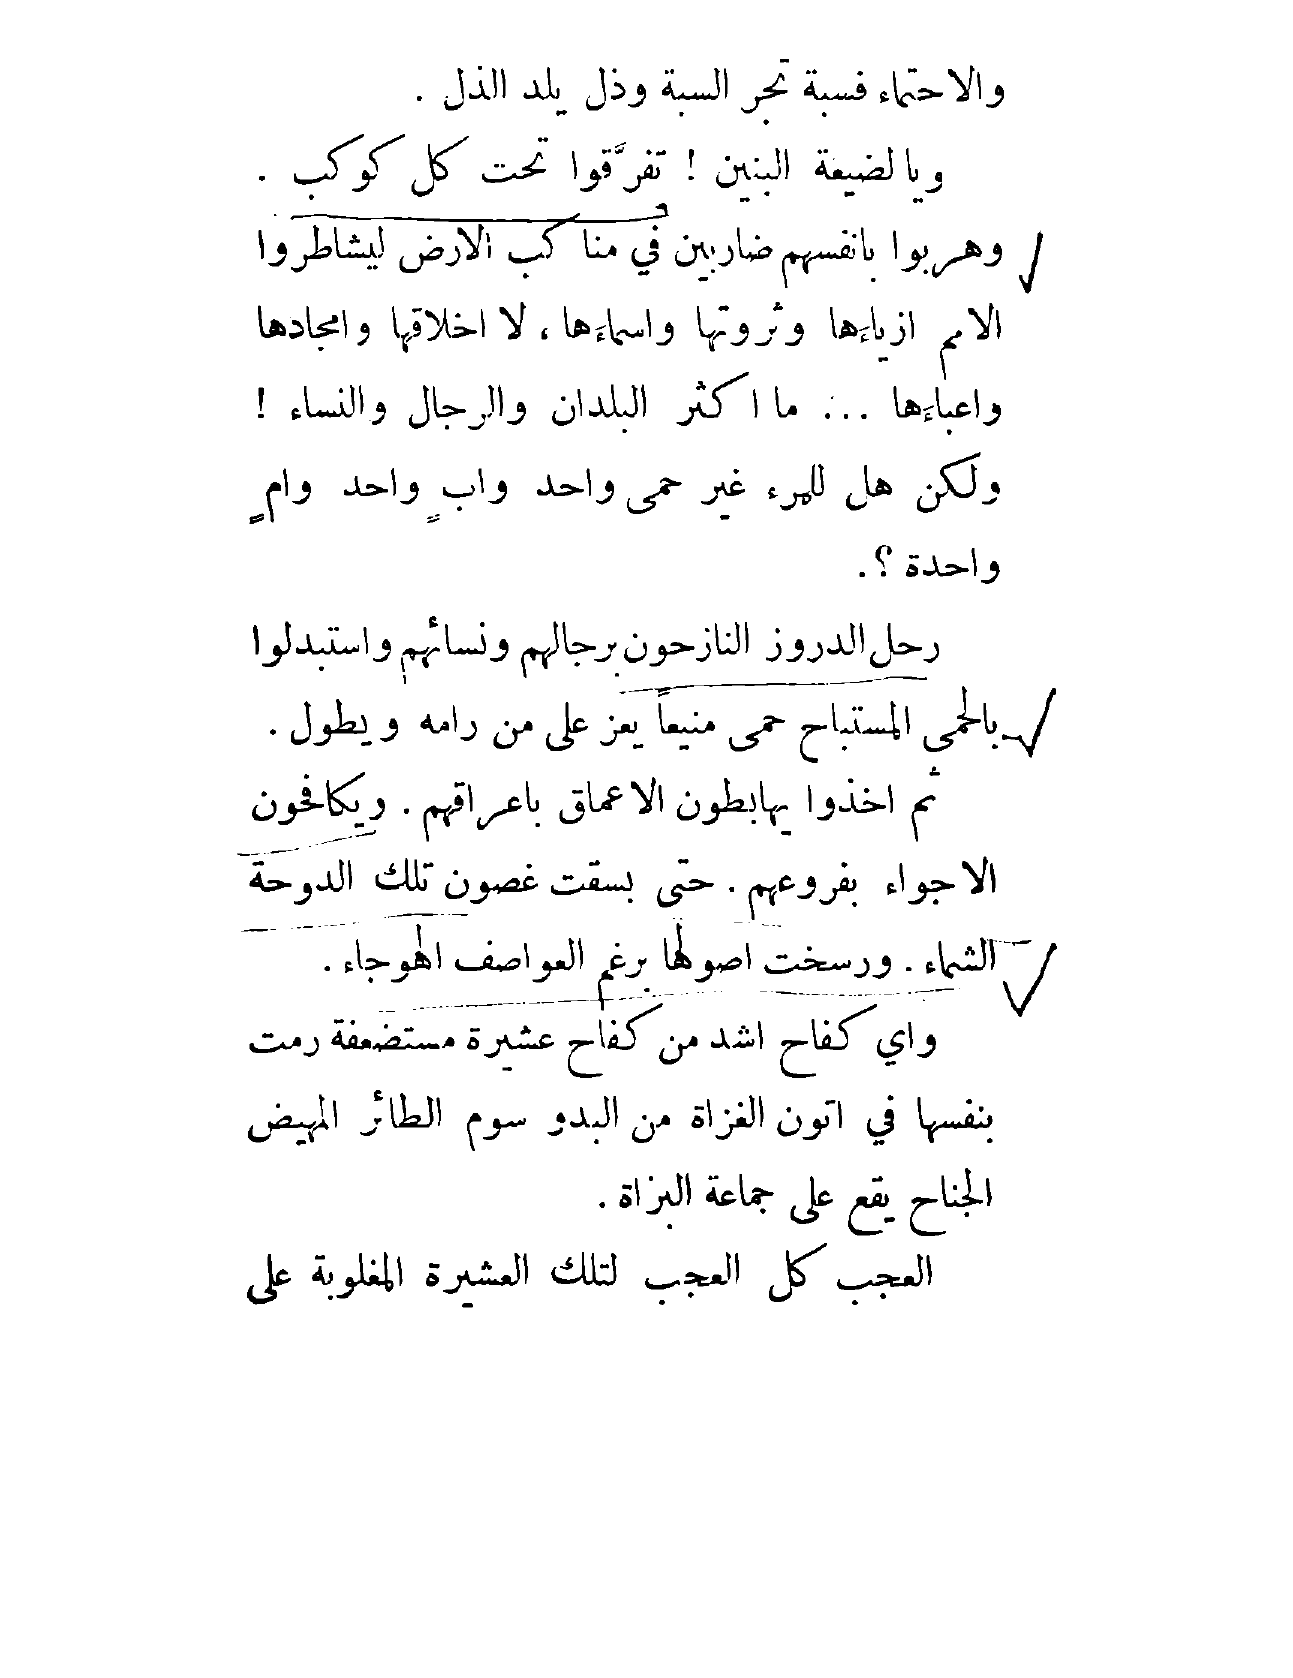 والاحتماء فسبة تجر السبة وذل يلد الذل .
ويا لضيعة البنين ! تفرَّقوا تحت كل كوكب .
وهربوا بانفسهم ضاربين في مناكب الارض ليشاطروا
الامم ازياءَها وثروتها واسماءَها ، لا اخلاقها وامجادها
واعباءَها ... ما اكثر البلدان والرجال والنساء !
ولكن هل للمرء غير حمى واحد وابٍ واحد وامٍ
واحدة ؟.
رحل الدروز النازحون برجالهم ونسائهم واستبدلوا
بالحمى المستباح حمى منيعاً يعز على من رامه ويطول .
ثم اخذوا يهابطون الاعماق باعراقهم . ويكافحون
الاجواء بفروعهم . حتى بسقت غصون تلك الدوحة
الشماء . ورسخت اصولها برغم العواصف الهوجاء .
واي كفاح اشد من كفاح عشيرة مستضعفة رمت
بنفسها في اتون الغزاة من البدو سوم الطائر المهيض
الجناح يقع على جماعة البزاة .
العجب كل العجب لتلك العشيرة المغلوبة على